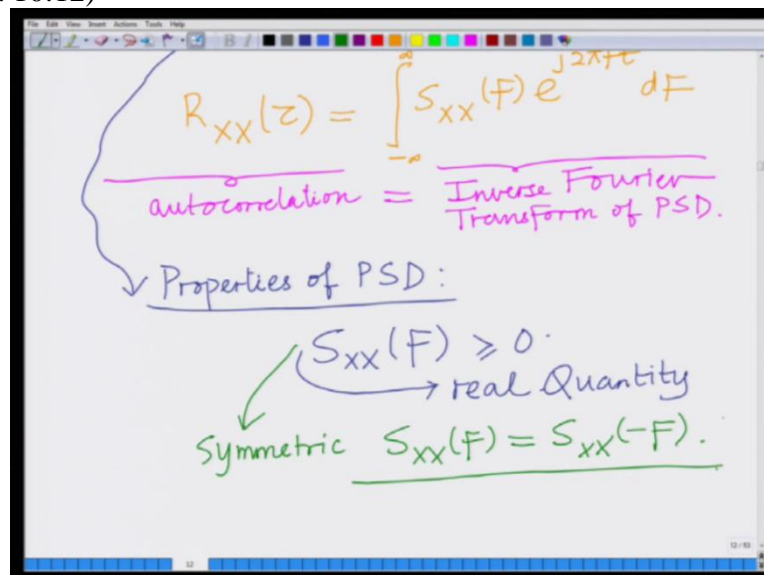 16:12)
File Edit View Insert Actions Tools Help
B I
R_XX(τ) = ∫_{-∞}^{∞} S_XX(F) e^{j2πFτ} dF
autocorrelation = Inverse Fourier
Transform of PSD.
Properties of PSD:
S_XX(F) ≥ 0.
real Quantity
Symmetric S_XX(F) = S_XX(-F).
12 / 93
12